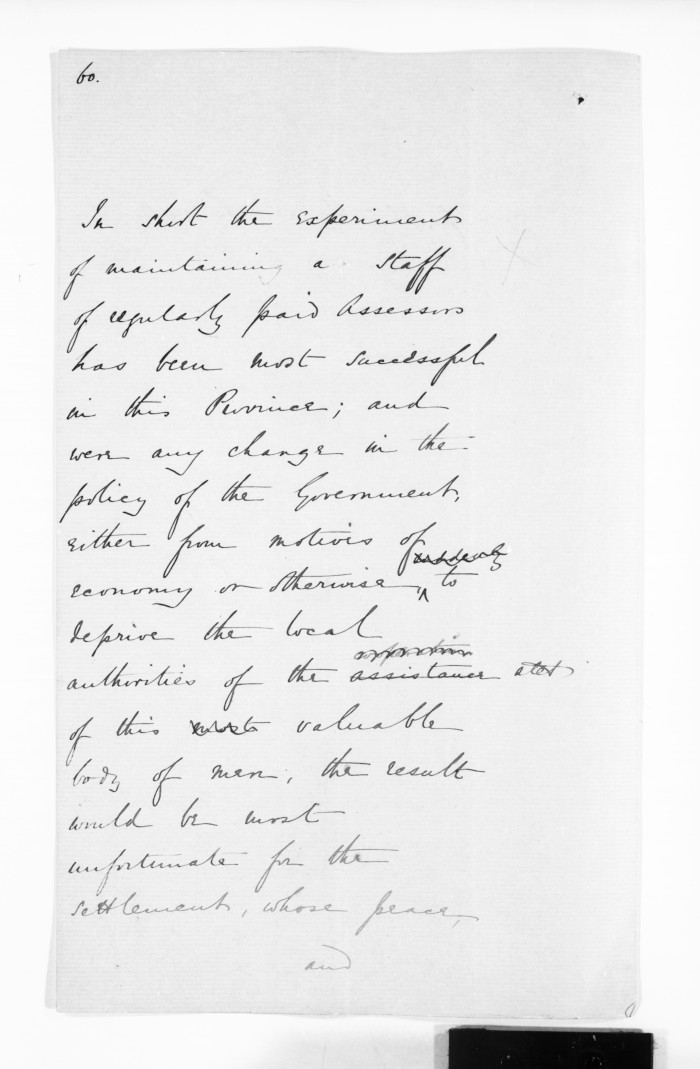 60.
In short the experiment
of maintaining a staff
of regularly paid Assessors
has been most successful
in this Province; and
were any change in the
policy of the Government,
either from motives of
suddenly
economy or otherwise, ^ to
deprive the local
authorities of the assistance stet
of this most valuable
body of men, the result
would be most
unfortunate for the
settlement, whose peace,
and